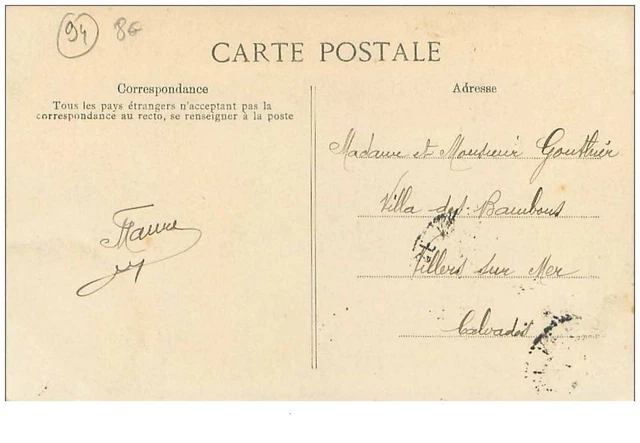 94 8€
CARTE POSTALE
Correspondance
Tous les pays étrangers n'acceptant pas la
correspondance au recto, se renseigner à la poste
Adresse
Madame et Monsieur Gouthier
Villa des Bambous
Villers sur Mer
Calvados